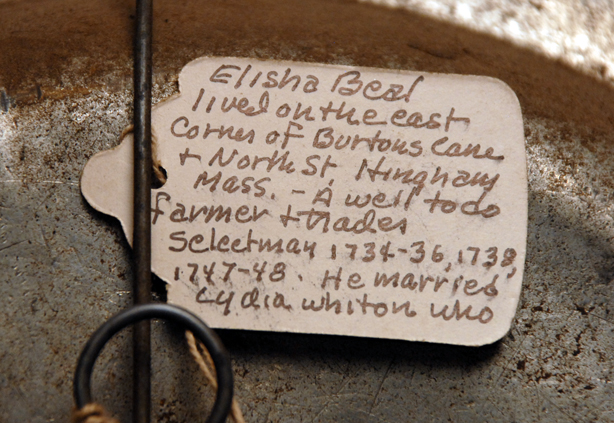 Elisha Beal
lived on the east
Corner of Burtons Lane
+ North St Hingham
Mass. - A well to do
farmer + trader
Selectman 1734-36, 1738,
1747-48. He married
Lydia Whiton who